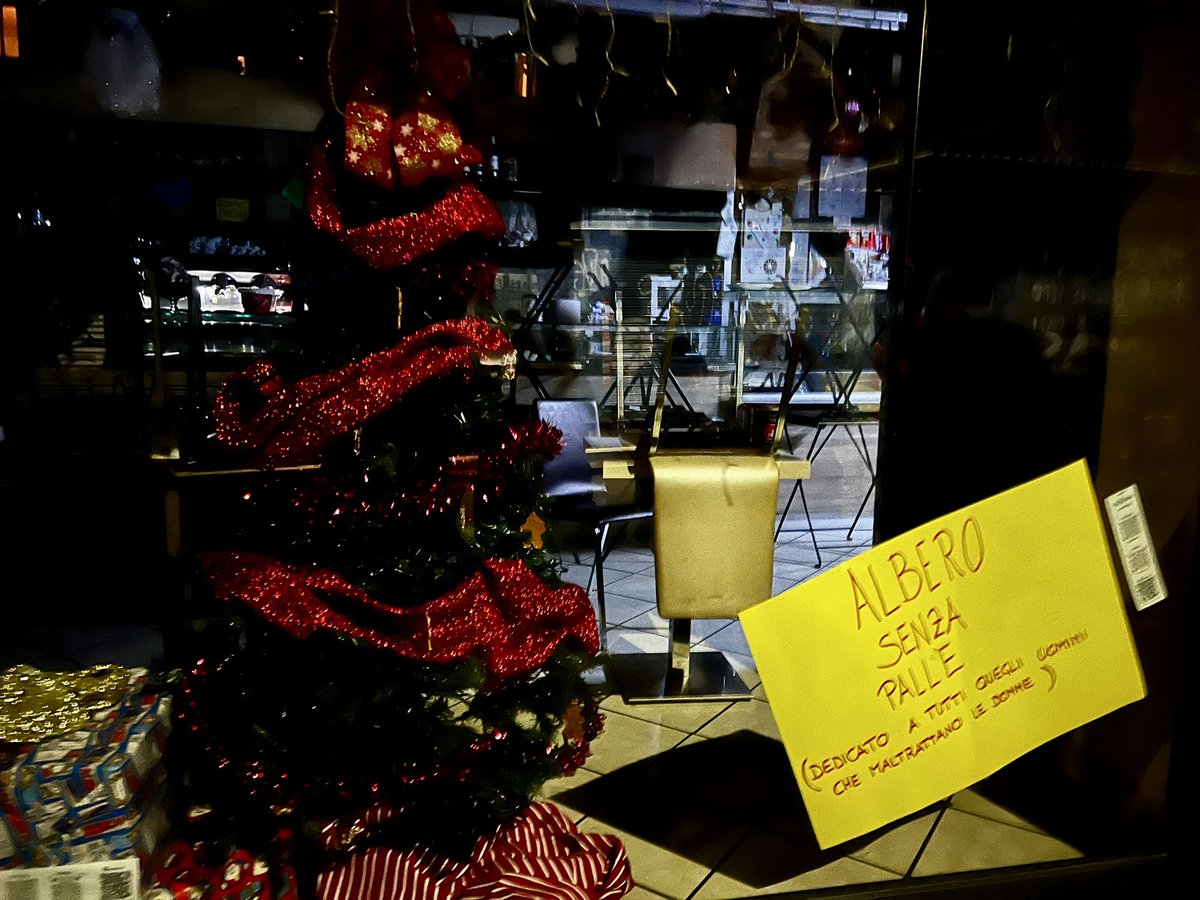 ALBERO
SENZA
PALLE
(DEDICATO A TUTTI QUEGLI UOMINI
CHE MALTRATTANO LE DONNE)